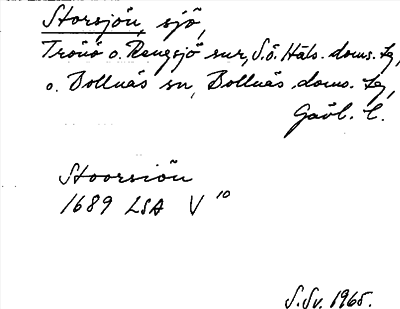 Storsjön, sjö,
Trönö o. Rengsjö snr, S.ö. Häls. doms. lg,
o. Bollnäs sn, Bollnäs doms. lg,
Gävl. l.
Stoorsiön
1689 LSA V 10
S.Sv. 1965.